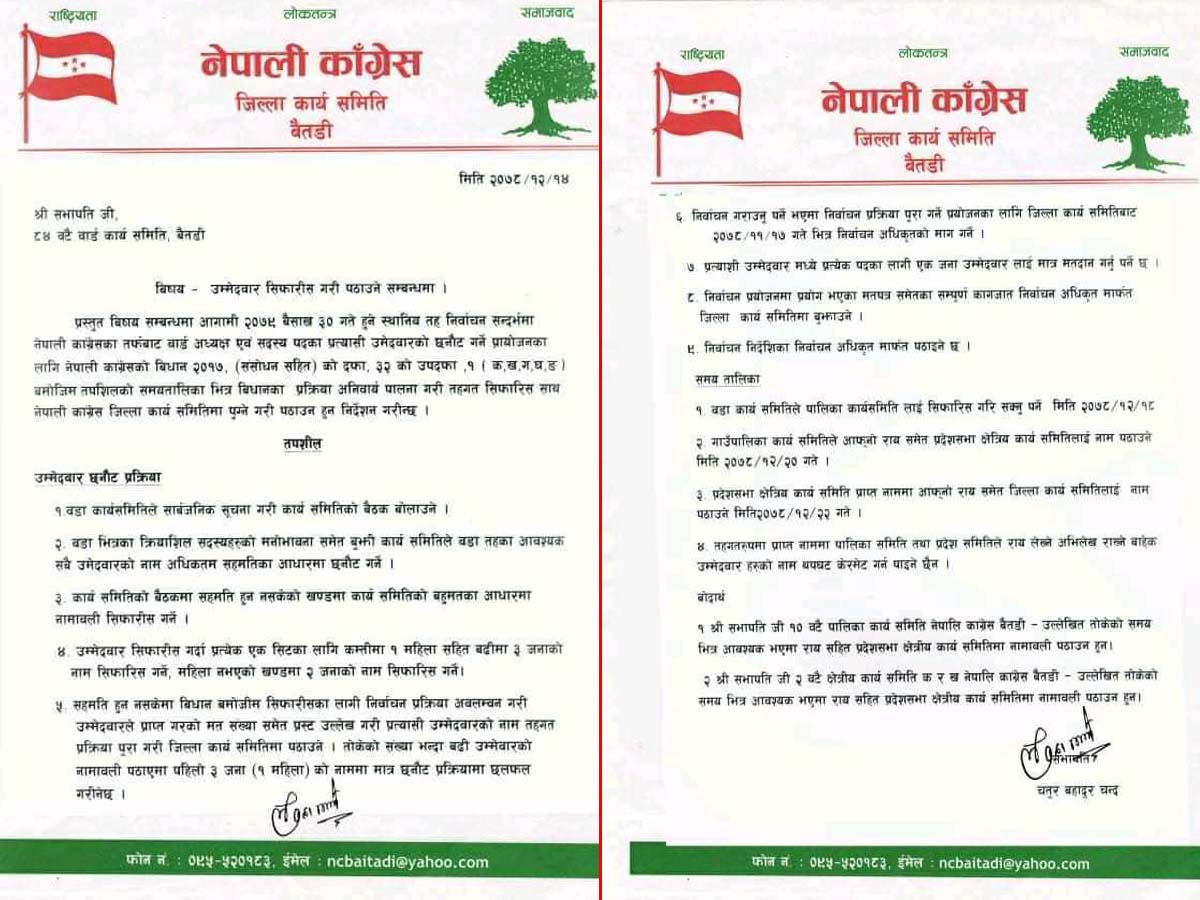 राष्ट्रियता लोकतन्त्र समाजवाद
नेपाली काँग्रेस
जिल्ला कार्य समिति
बैतडी
मिति २०७८/१२/१४
श्री सभापति जी,
८४ वटै वार्ड कार्य समिति, बैतडी
बिषय - उम्मेदवार सिफारीस गरी पठाउने सम्बन्धमा ।
प्रस्तुत बिषय सम्बन्धमा आगामी २०७९ बैसाख ३० गते हुने स्थानिय तह निर्वाचन सन्दर्भमा
नेपाली कांग्रेसका तर्फबाट वार्ड अध्यक्ष एवं सदस्य पदका प्रत्यासी उमेदवारको छनौट गर्ने प्रायोजनका
लागि नेपाली कांग्रेसको बिधान २०१७, (संसोधन सहित) को दफा, ३२ को उपदफा ,१ ( क,ख,ग,घ,ङ )
बमोजिम तपशिलको समयतालिका भित्र बिधानका प्रक्रिया अनिवार्य पालना गरी तहगत सिफारिस साथ
नेपाली कांग्रेस जिल्ला कार्य समितिमा पुग्ने गरी पठाउन हुन निर्देशन गरीन्छ ।
तपशील
उम्मेदवार छनौट प्रक्रिया
१.वडा कार्यसमितिले सार्बजनिक सूचना गरी कार्य समितिको बैठक बोलाउने ।
२. वडा भित्रका क्रियाशिल सदस्यहरुको मनोभावना समेत बुझी कार्य समितिले वडा तहका आवश्यक
सबै उमेदवारको नाम अधिकतम सहमतिका आधारमा छनौट गर्ने ।
३. कार्य समितिको बैठकमा सहमति हुन नसकेको खण्डमा कार्य समितिको बहुमतका आधारमा
नामावली सिफारीस गर्ने ।
४. उम्मेदवार सिफारीस गर्दा प्रत्येक एक सिटका लागि कम्तीमा १ महिला सहित बढीमा ३ जनाको
नाम सिफारिस गर्ने, महिला नभएको खण्डमा २ जनाको नाम सिफारिस गर्ने।
५. सहमति हुन नसकेमा बिधान बमोजीम सिफारीसका लागी निर्वाचन प्रक्रिया अवलम्वन गरी
उम्मेदवारले प्राप्त गरको मत संख्या समेत प्रस्ट उल्लेख गरी प्रत्यासी उम्मेदवारको नाम तहगत
प्रक्रिया पुरा गरी जिल्ला कार्य समितिमा पठाउने । तोकेको संख्या भन्दा बढी उम्मेवारको
नामावली पठाएमा पहिली ३ जना (१ महिला) को नाममा मात्र छनौट प्रक्रियामा छलफल
गरीनेछ ।
फोन नं. : ०९५-५२०१८३, इमेल : ncbaitadi@yahoo.com
राष्ट्रियता लोकतन्त्र समाजवाद
नेपाली काँग्रेस
जिल्ला कार्य समिति
बैतडी
६. निर्वाचन गराउनु पर्ने भएमा निर्वाचन प्रक्रिया पुरा गर्ने प्रयोजनका लागि जिल्ला कार्य समितिबाट
२०७८/११/१७ गते भित्र निर्वाचन अधिकृतको माग गर्ने ।
७. प्रत्याशी उम्मेदवार मध्ये प्रत्येक पदका लागी एक जना उम्मेदवार लाई मात्र मतदान गर्नु पर्ने छ ।
८. निर्वाचन प्रयोजनमा प्रयोग भएका मतपत्र समेतका सम्पुर्ण कागजात निर्वाचन अधिकृत मार्फत
जिल्ला कार्य समितिमा बुझाउने ।
९. निर्वाचन निर्देशिका निर्वाचन अधिकृत मार्फत पठाइने छ ।
समय तालिका
१. वडा कार्य समितिले पालिका कार्यसमिति लाई सिफारिस गरि सक्नु पर्ने मिति २०७८/१२/१८
२. गाउँपालिका कार्य समितिले आफ्नो राय समेत प्रदेशसभा क्षेत्रिय कार्य समितिलाई नाम पठाउने
मिति २०७८/१२/२० गते ।
३. प्रदेशसभा क्षेत्रिय कार्य समिति प्राप्त नाममा आफ्नो राय समेत जिल्ला कार्य समितिलाई नाम
पठाउने मिति२०७८/१२/२२ गते ।
४. तहगतरुपमा प्राप्त नाममा पालिका समिति तथा प्रदेश समितिले राय लेख्ने अभिलेख राख्ने बाहेक
उम्मेदवार हरुको नाम थपघट केरमेट गर्न पाइने छैन ।
बोदार्थ
१ श्री सभापति जी १० वटै पालिका कार्य समिति नेपालि कांग्रेस बैतडी - उल्लेखित तोकेको समय
भित्र आवश्यक भएमा राय सहित प्रदेशसभा क्षेत्रीय कार्य समितिमा नामावली पठाउन हुन।
२ श्री सभापति जी २ वटै क्षेत्रीय कार्य समिति क र ख नेपालि कांग्रेस बैतडी - उल्लेखित तोकेको
समय भित्र आवश्यक भएमा राय सहित प्रदेशसभा क्षेत्रीय कार्य समितिमा नामावली पठाउन हुन।
सभापति
चतुर बहादुर चन्द
फोन नं. : ०९५-५२०१८३, इमेल : ncbaitadi@yahoo.com